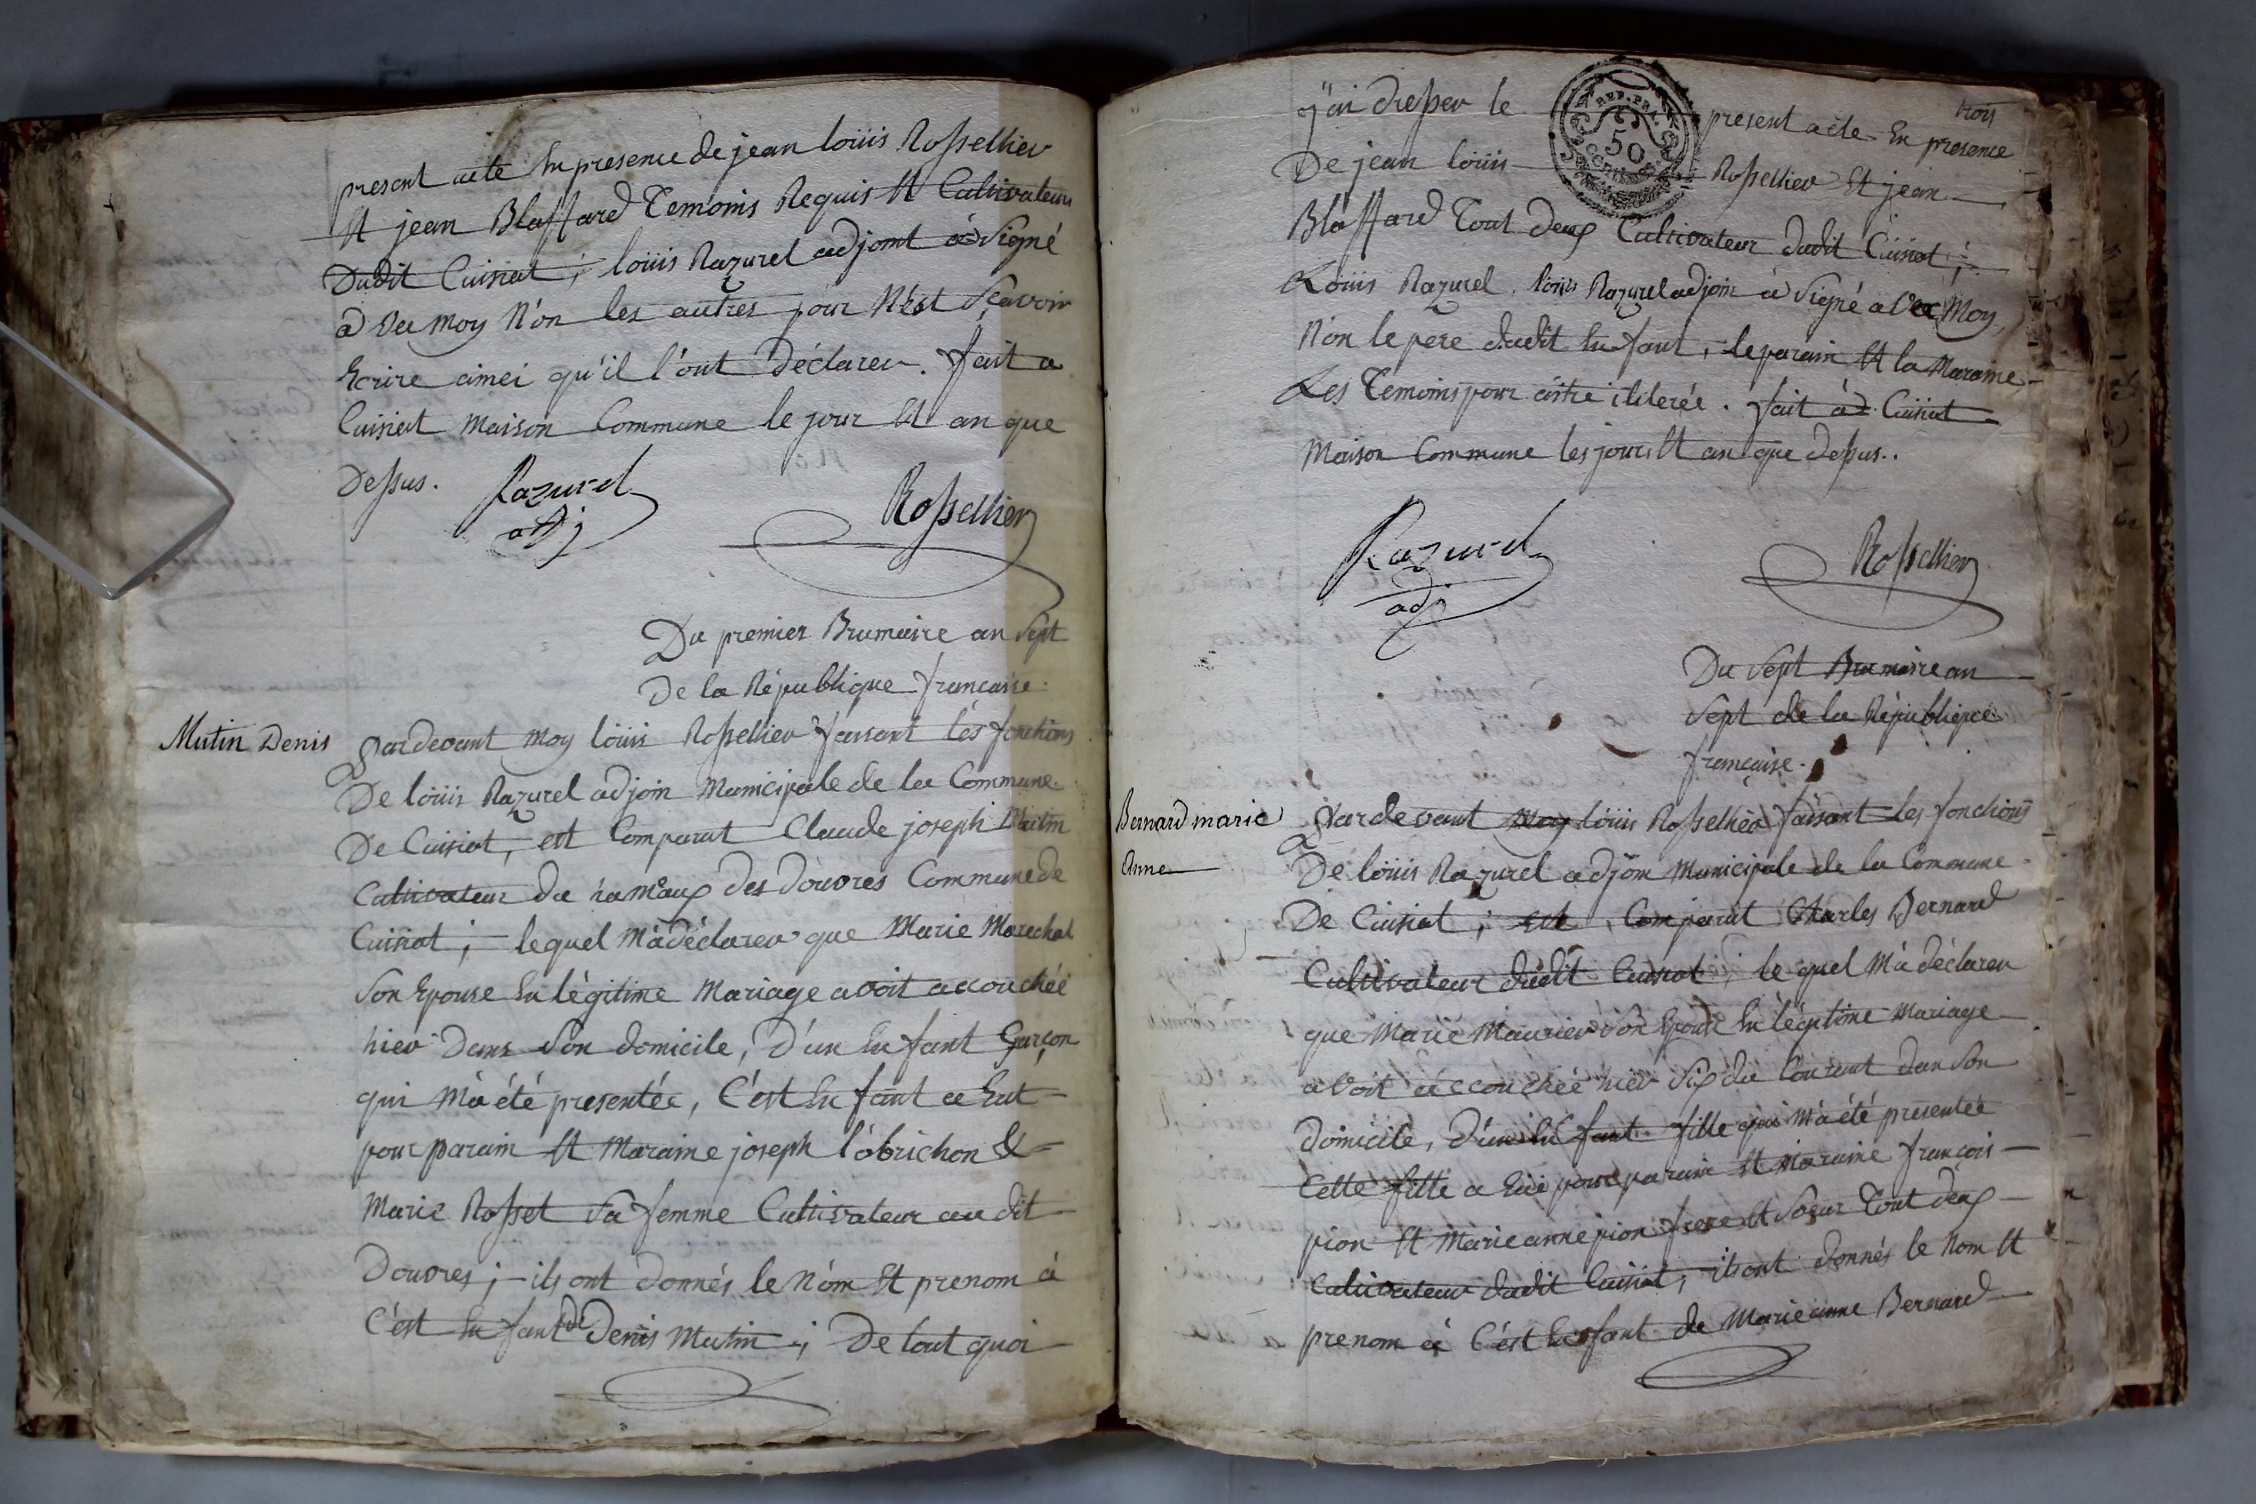 present acte En presence de jean loüis Rossellier
Et jean Blaffard Temoins Requis Et Cultivateurs
Dudit Cuisiat ; loüis Razurel adjoint à Signé
à vec moy N'on les autres pour N'est Sçavoir
Ecrire ainci qu'il l'ont Déclarer. fait a
Cuisiat Maison Commune le jour Et an que
Dessus.
Razurel
adj
Rossellier
Du premier Brumaire an Sept
De la République francaise.
Mutin Denis
Pardevant Moy loüis Rossellier faisant les fonctions
De loüis Razurel adjoin Municipale de la Commune
De Cuisiat, est Comparut Claude joseph Mutin
Cultivateur du hameaux des douvres Commune de
Cuisiat ; lequel M'à déclarer que Marie Marechal
Son Epouse En légitime Mariage avoit accouchée
hier Dans Son domicile, D'un Enfant Garçon
qui M'à été presentée, C'est Enfant a Eut
pour parain Et Maraine joseph l'obrichon &
Marie Rosset Sa femme Cultivateur au dit
Douvres ; ils ont donnés le Nom Et prenom à
C'est Enfant de Denis Mutin ; De tout quoi
trois
j'ai dresser le present acte En presence
De jean loüis Rossellier Et jean
Blaffard Tout deux Cultivateur dudit Cuisiat ;
Loüis Razurel. loüis Razurel adjoin à Signé avec Moy,
N'on le pere dudit Enfant, le parain Et la Maraine,
Les Temoins pour aître iliterée. fait à Cuisiat
Maison Commune les jours Et an que dessus..
REP. FRA.
50
Razurel
adj
Rossellier
Du Sept Brumaire an
Sept de la République
francaise.
Bernard marie
Anne
Pardevant Moy loüis Rossellier faisant les fonctions
De loüis Razurel adjoin Municipale de la Commune
De Cuisiat ; est Comparut Charles Bernard
Cultivateur dudit Cuisiat ; le quel M'à déclarer
que Marie Maurier Son Epouse En légitime Mariage
avoit accouchée hier Six du Courent dan Son
domicile, d'un Enfant fille qui M'à été presentée
Cette fille a Eüe pour parain Et Maraine françois
pion Et Marie anne pion frere Et Soeur Tout deux
Cultivateur dudit Cuisiat, ils ont donnés le Nom Et
prenom à C'est Enfant de Marie anne Bernard